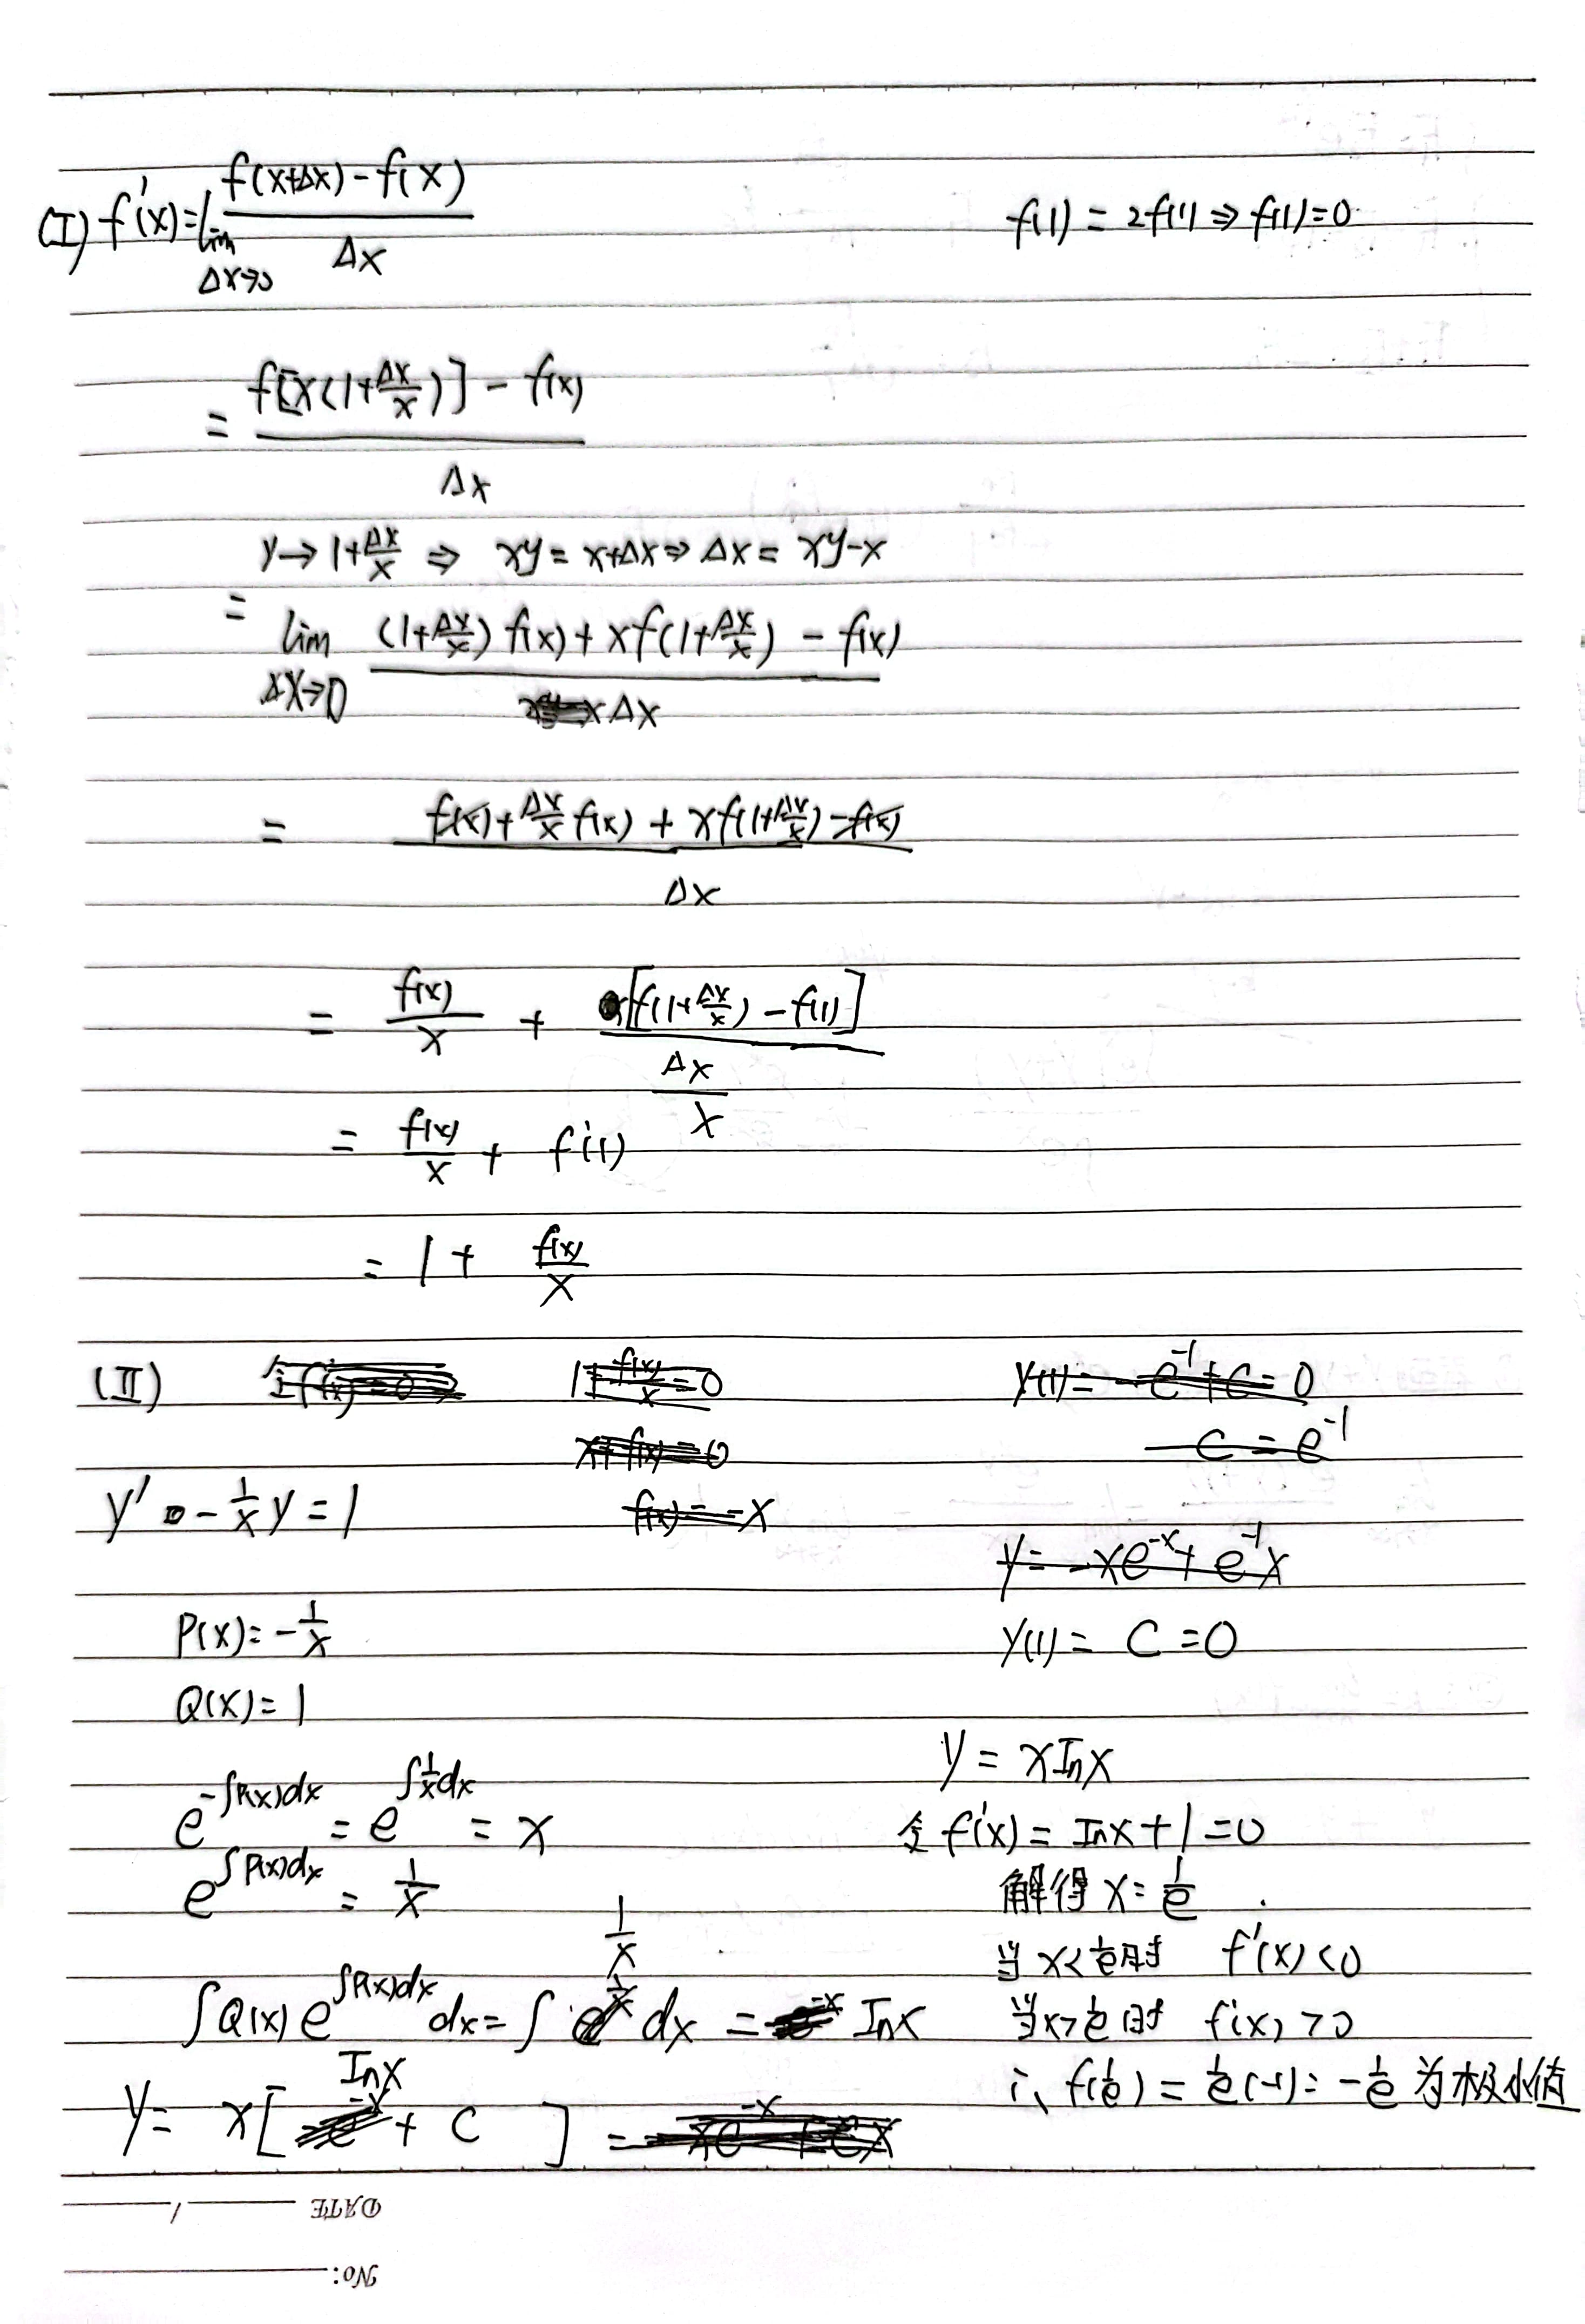 (I) f'(x)=lim Δx→0 (f(x+Δx)-f(x))/Δx
f(1)=2f(1)⇒f(1)=0
= (f[x(1+Δx/x)]-f(x))/Δx
y→1+Δx/x ⇒ xy=x+Δx⇒Δx=xy-x
= lim Δx→0 ((1+Δx/x)f(x)+xf(1+Δx/x)-f(x))/Δx
= (f(x)+Δx/x f(x)+xf(1+Δx/x)-f(x))/Δx
= f(x)/x + [f(1+Δx/x)-f(1)]/(Δx/x)
= f(x)/x + f'(1)
= 1+ f(x)/x
(II) 令f'(x)=0
1+f(x)/x=0
x+f(x)=0
f(x)=-x
y' - 1/x y=1
P(x)=-1/x
Q(x)=1
e^(-∫P(x)dx) = e^(∫1/x dx) = x
e^(∫P(x)dx) = 1/x
∫Q(x)e^(∫P(x)dx) dx=∫ 1/x dx = lnx
y= x[lnx + C]
y(1)= -e^-1+C=0
C=e^-1
y=-xe^-x+e^-1 x
y(1)= C=0
y=xlnx
令f'(x)=lnx+1=0
解得x=1/e
当x<1/e时 f'(x)<0
当x>1/e时 f'(x)>0
∴ f(1/e)=1/e(-1)=-1/e 为极小值
DATE /
No: